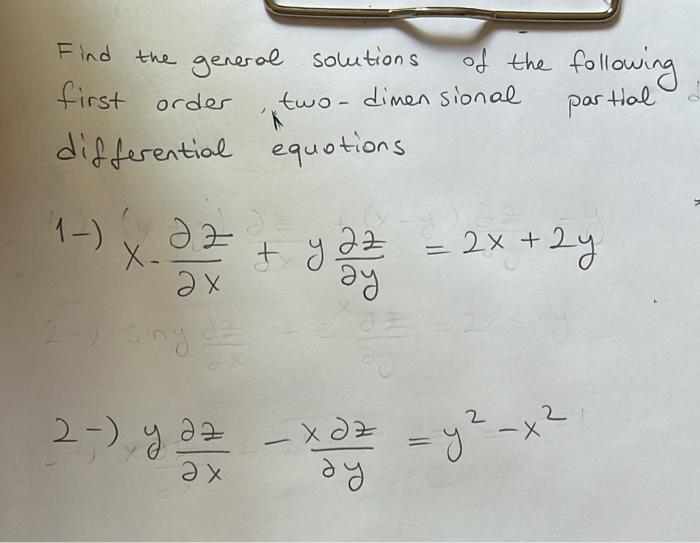 Find the general solutions of the following
first order, two-dimensional partial
differential equations
1-) x.∂z/∂x + y ∂z/∂y = 2x + 2y
2-) y ∂z/∂x - x∂z/∂y = y² - x²